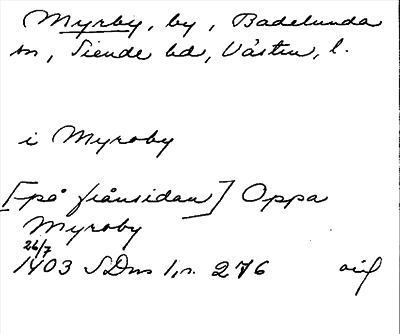 Myrby, by, Badelunda
sn, Siende hd, Västm. l.
i Myroby
[på frånsidan] Oppa
Myroby
26/7
1403 SDns 1, s. 276 avs